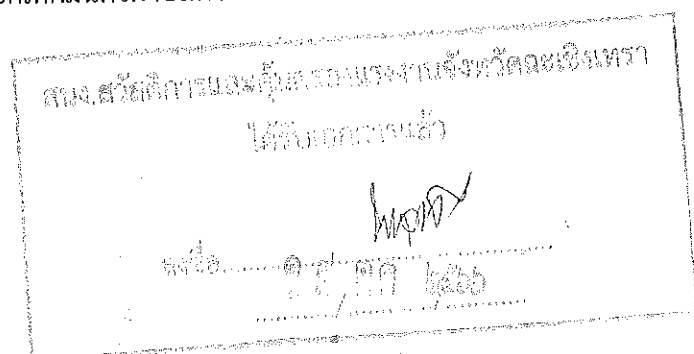 สนง.สวัสดิการและคุ้มครองแรงงานจังหวัดฉะเชิงเทรา
ได้รับเอกสารแล้ว
ลงชื่อ
ตค ๒๕๖๖